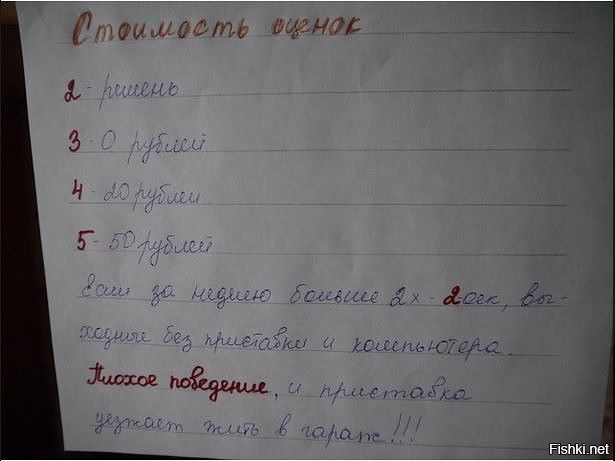 Стоимость оценок
2 - ремень
3 - 0 рублей
4 - 20 рублей
5 - 50 рублей
Если за неделю больше 2х - 2оек, вы-
ходные без приставки и компьютера.
Плохое поведение, и приставка
уезжает жить в гараж!!!
Fishki.net